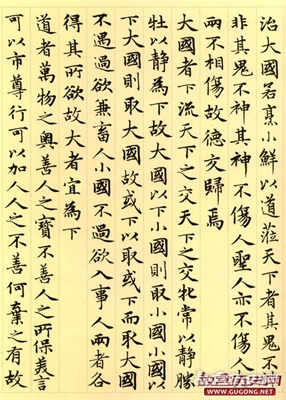 治大國若烹小鮮以道蒞天下者其鬼不
非其鬼不神其神不傷人聖人亦不傷人
兩不相傷故德交歸焉
大國者下流天下之交天下之交牝常以靜勝
牡以靜為下故大國以下小國則取小國小國以
下大國則取大國故或下以取或下而取大國
不過欲兼畜人小國不過欲入事人兩者各
得其所欲故大者宜為下
道者萬物之奧善人之寶不善人之所保美言
可以市尊行可以加人人之不善何棄之有故
故宫历史网
www.GUGONG.net